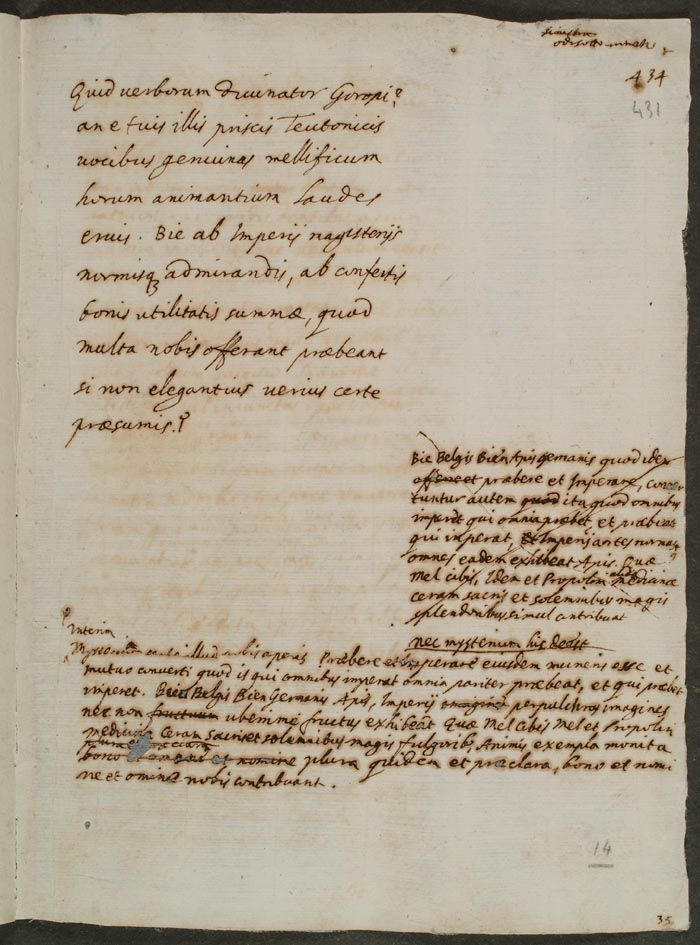 sinistra
434
431
Quid verborum divinator Goropi?
an e tuis illis priscis Teutonicis
vocibus genuinas mellificum
horum animantium laudes
eruis. Bie ab Imperij magisterijs
normisq admirandis, ab confertis
bonis utilitatis summæ, quod
multa nobis offerant præbeant
si non elegantius verius certe
præsumis.?
Bie Belgis Bien Apis germanis quod idem
offerre et præbere et Imperare,
tuntur autem quod ita quod omnibus
imperet qui omnia præbet, et præbeat
qui imperat, et Imperij artes normasq
omnes eadem exhibeat Apis. Quæ
Mel cibis, Idem et Propolim medicinæ
ceram sacris et solemnibus magis
splendoribus simul contribuat
nec mysterium hic deest
Interim
Mysterium illud nobis aperis Præbere et Imperare eiusdem muneris esse et
mutuo converti quod is qui omnibus imperat omnia pariter præbeat, et qui præbet
imperet. Bie Belgis Bien Germanis Apis, Imperij imagines perpulchras imagines
nec non fructuum uberrime fructus exhibeat Quæ Mel cibis Mel et Propolim
medicinæ Ceram Sacris et solemnibus magis fulgorib, Animis exempla monita
plura
bono et nomine plura quidem et præclara, bono et nomi
ne et omine nobis contribuant.
14
35